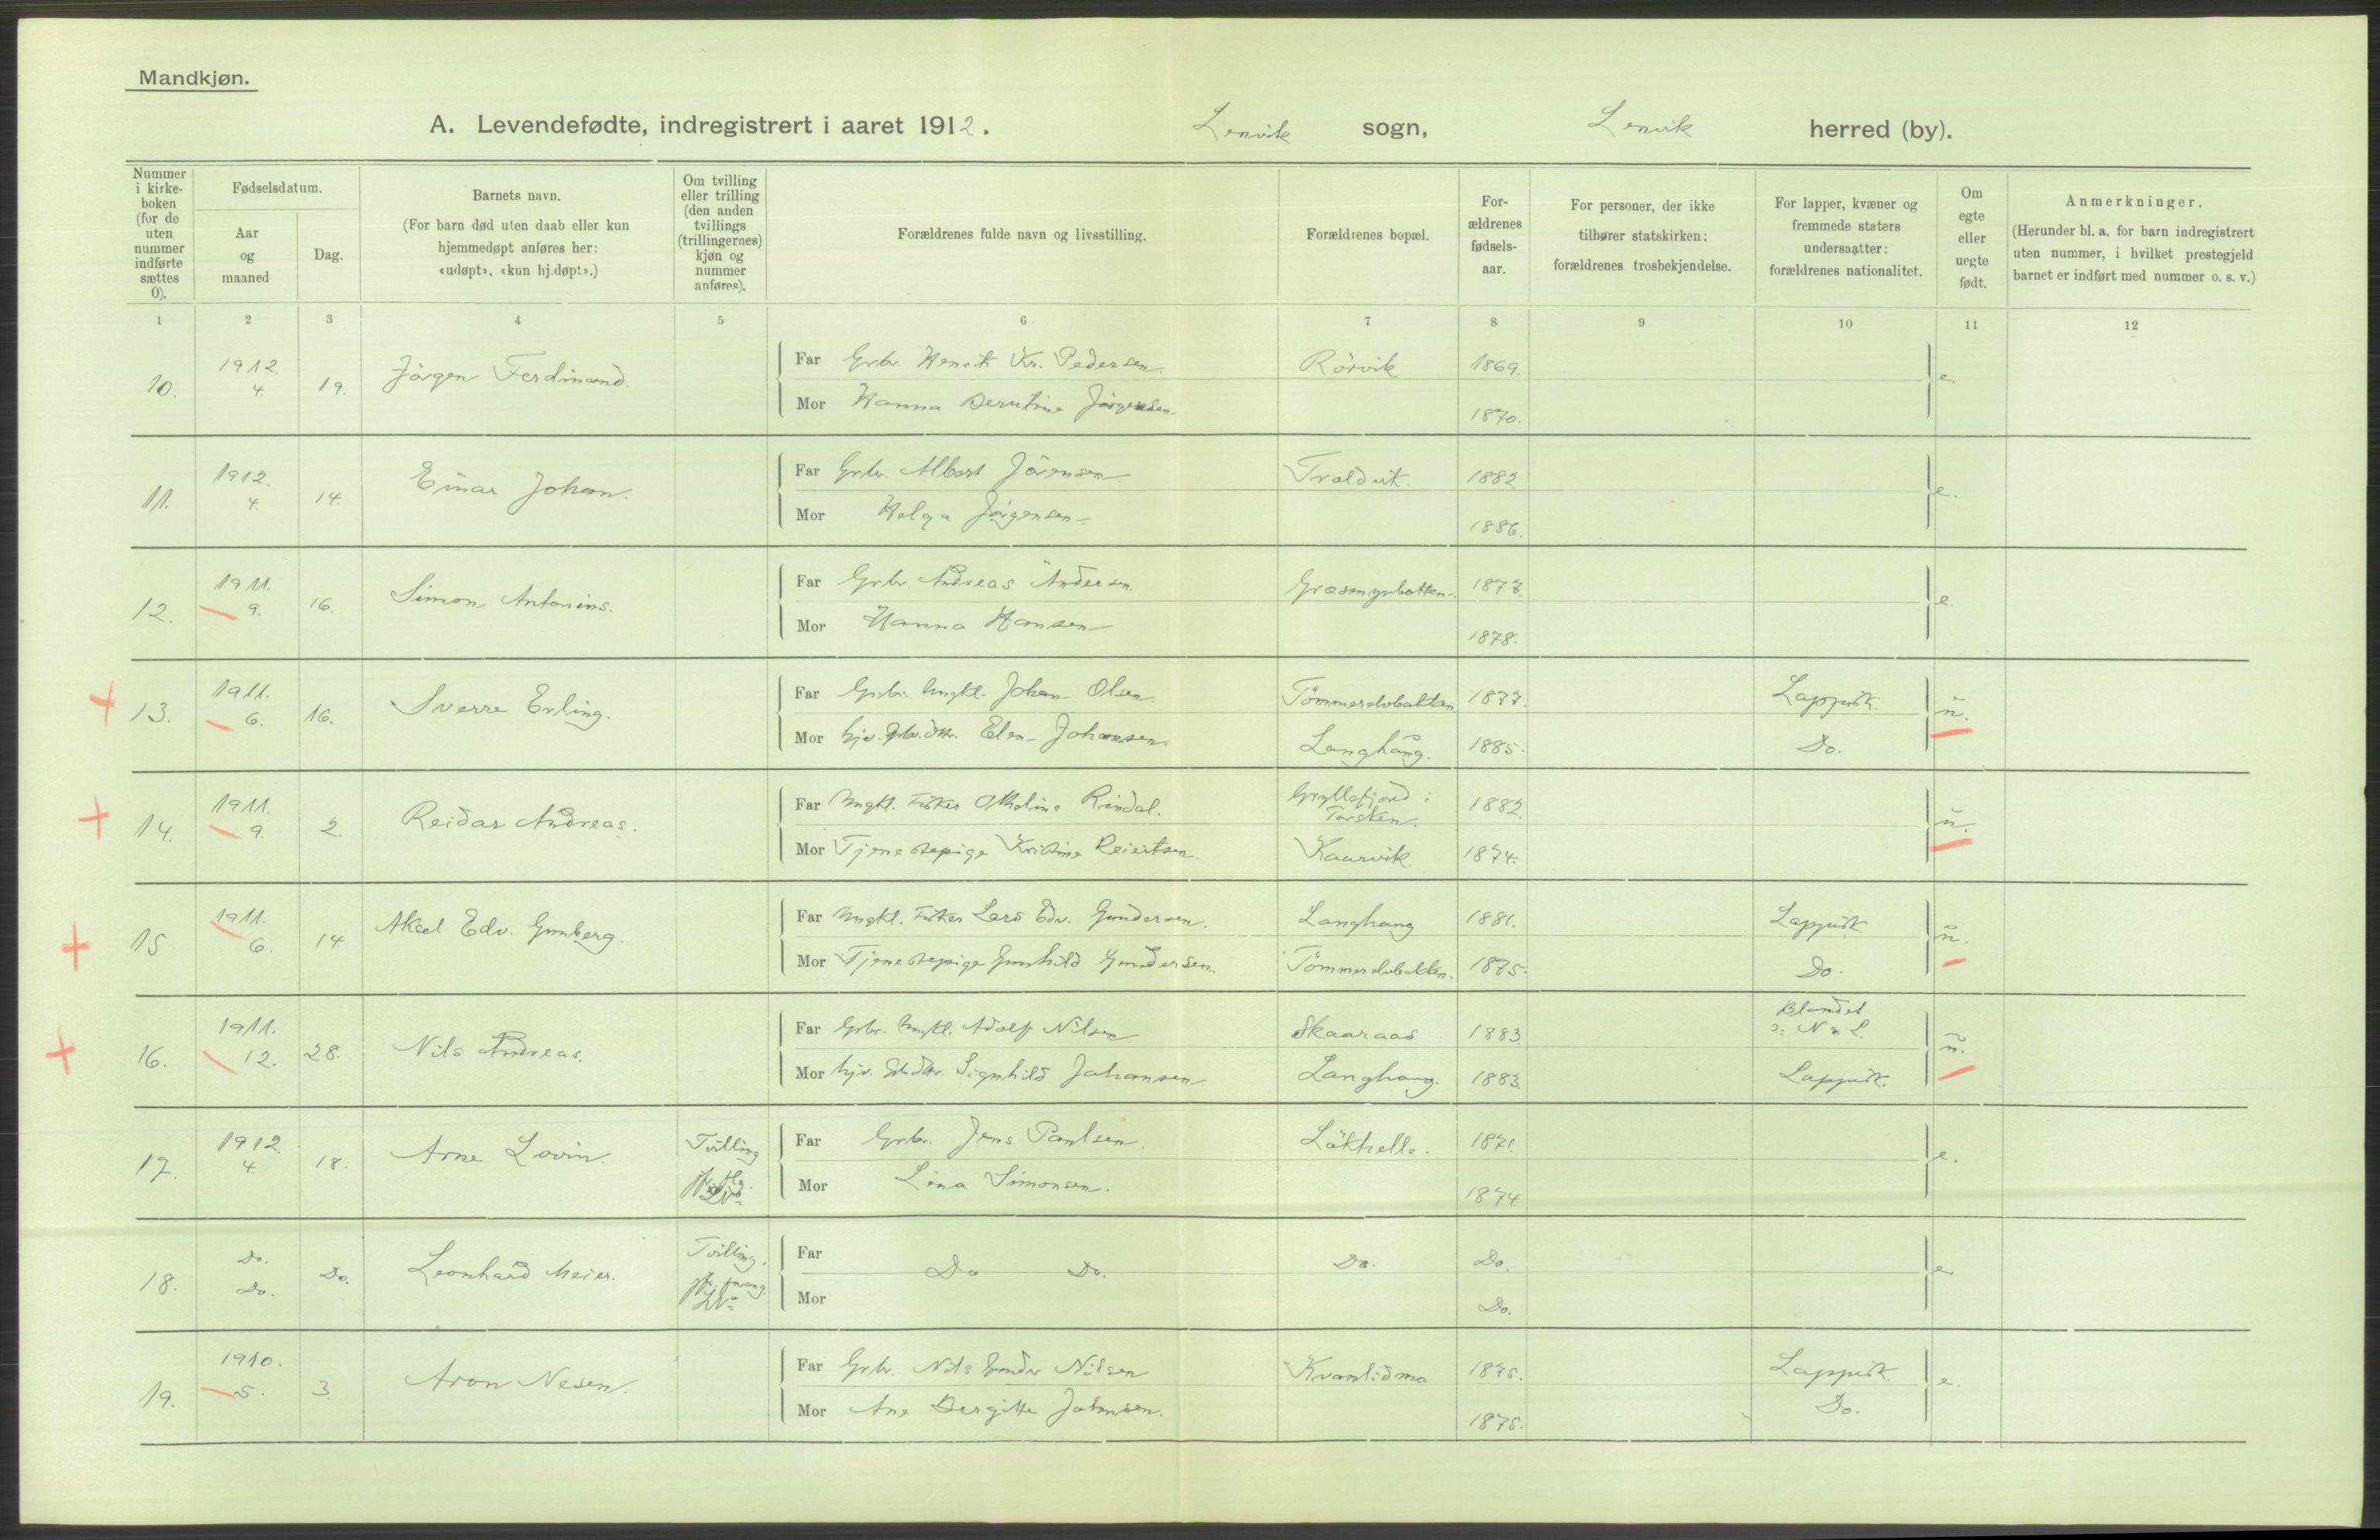 Mandkjøn.
A. Levendefødte, indregistrert i aaret 1912. Lenvik sogn, Lenvik herred (by).
Nummer i kirke-boken (for de uten nummer indførte sættes 0).
Fødselsdatum.
Aar og maaned
Dag.
Barnets navn.
(For barn død uten daab eller kun hjemmedøpt anføres her: «udøpt», «kun hj.døpt».)
Om tvilling eller trilling (den anden tvillings (trillingernes) kjøn og nummer anføres).
Forældrenes fulde navn og livsstilling.
Forældrenes bopæl.
For-ældrenes fødsels-aar.
For personer, der ikke tilhører statskirken: forældrenes trosbekjendelse.
For lapper, kvæner og fremmede staters undersaatter: forældrenes nationalitet.
Om egte eller uegte født.
Anmerkninger.
(Herunder bl. a. for barn indregistrert uten nummer, i hvilket prestegjeld barnet er indført med nummer o. s. v.)
1 2 3 4 5 6 7 8 9 10 11 12
10. 1912. 4. 19. Jörgen Ferdinand. Far Grbr. Henrik Kr. Pedersen. Rörvik 1869. e.
Mor Hanna Berntine Jörgensen. 1870.
11. 1912. 4. 14. Einar Johan. Far Grbr. Albert Jörensen Troldvik 1882 e.
Mor Helga Jörgensen 1886.
12. 1911. 9. 16. Simon Antonius. Far Grbr. Andreas Andersen. 1877. e.
Mor Hanna Hansen 1878.
13. 1911. 6. 16. Sverre Erling. Far Grbr. Ungkl. Johan Olsen Tömmerelvbakken 1877. Lappisk. u.
Mor hjv. Grbr.dtr. Elen Johansen. Langhaug. 1885. Do.
14. 1911. 9. 2. Reidar Andreas. Far Ungkl. Fisker Rindal. Gryllefjord i Torsken. 1882. u.
Mor Tjenestepige Kristine Reiertsen. Kaarvik 1874.
15 1911. 6. 14. Aksel Edv. Gunberg. Far Ungkl. Fisker Lars Edv. Gundersen. Langhaug 1881. Lappisk. u.
Mor Tjenestepige Gunhild Gundersen. Tömmerelvbakken. 1875. Do.
16. 1911. 12. 28. Nils Andreas. Far Grbr. Ungkl. Adolf Nilsen Skaaraas 1883. Blandet ɔ: N. L. u.
Mor hjv. Grbr.dtr. Signhild Johansen Langhaug. 1883. Lappisk.
17. 1912. 4. 18. Arne Lovin. Tvilling Far Grbr. Jens Paulsen. Läkhelle. 1871. e.
Mor Lina Simonsen. 1874
18. Do. Do. Do. Leonhard Meier. Tvilling. Far Do Do. Do. Do. e
Mor Do.
19. 1910. 5. 3 Aron Nesen. Far Grbr. Nils Nilsen Kvanlidmo 1875. Lappisk e.
Mor Ane Bergitte Johansen. 1875. Do.